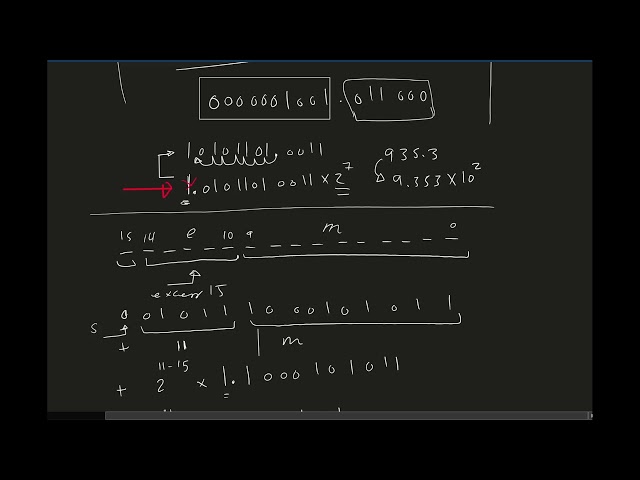 000000 1001 . 011 000
10101101.0011
935.3
1.01011010011 × 2^7
9.353 × 10^2
15 14 e 10 9 m 0
excess 15
S 0 01011 1000101011
+ 11 m
+ 2^11-15 × 1.1000101011